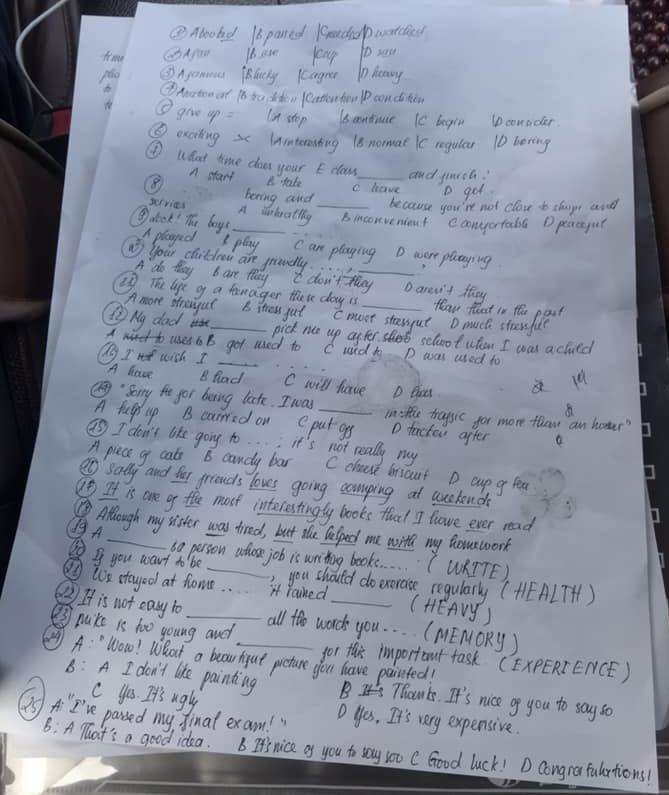 ① A booted |B panted |C reached |D watched
② A fan |B use |C cup |D sun
③ A famous |B lucky |C agree |D heavy
④ A national |B tradition |C attention |D condition
⑤ give up = |A stop |B continue |C begin |D consider
⑥ exciting >< |A interesting |B normal |C regular |D boring
⑦ What time does your E class ____ and finish?
A start B take C leave D get
⑧ boring and ____ because you're not close to shops and
services A B inconvenient C comfortable D peaceful
⑨ Look! The boys ____ ....
A played B play C are playing D were playing
⑩ Your children are friendly....., ____.
A do they B are they C don't they D aren't they
⑪ The life of a teenager these day is ____ than that in the past
A more stressful B stressful C most stressful D much stressful
⑫ My dad ____ pick me up after school when I was a child
A uses to B got used to C used to D was used to
⑬ I wish I ____ ....
A have B had C will have D has
⑭ "Sorry for being late. I was ____ in the traffic for more than an hour"
A help up B carried on C put off D taken after
⑮ I don't like going to ....; it's not really my
A piece of cake B candy bar C cheese biscuit D cup of tea
⑯ Sally and her friends loves going camping at weekends
⑰ It is one of the most interestingly books that I have ever read
⑱ Although my sister was tired, but she helped me with my homework
⑲ A ____ is a person whose job is writing books..... (WRITE)
⑳ If you want to be ____, you should do exercise regularly (HEALTH)
㉑ We stayed at home .... it rained ____ (HEAVY)
㉒ It is not easy to ____ all the words you .... (MEMORY)
㉓ Mike is too young and ____ for this important task. (EXPERIENCE)
㉔ A: "Wow! What a beautiful picture you have painted!
B: A I don't like painting B Thanks. It's nice of you to say so
C Yes. It's ugly D Yes, It's very expensive.
㉕ A: "I've passed my final exam!"
B: A That's a good idea. B It's nice of you to say soo C Good luck! D Congratulations!